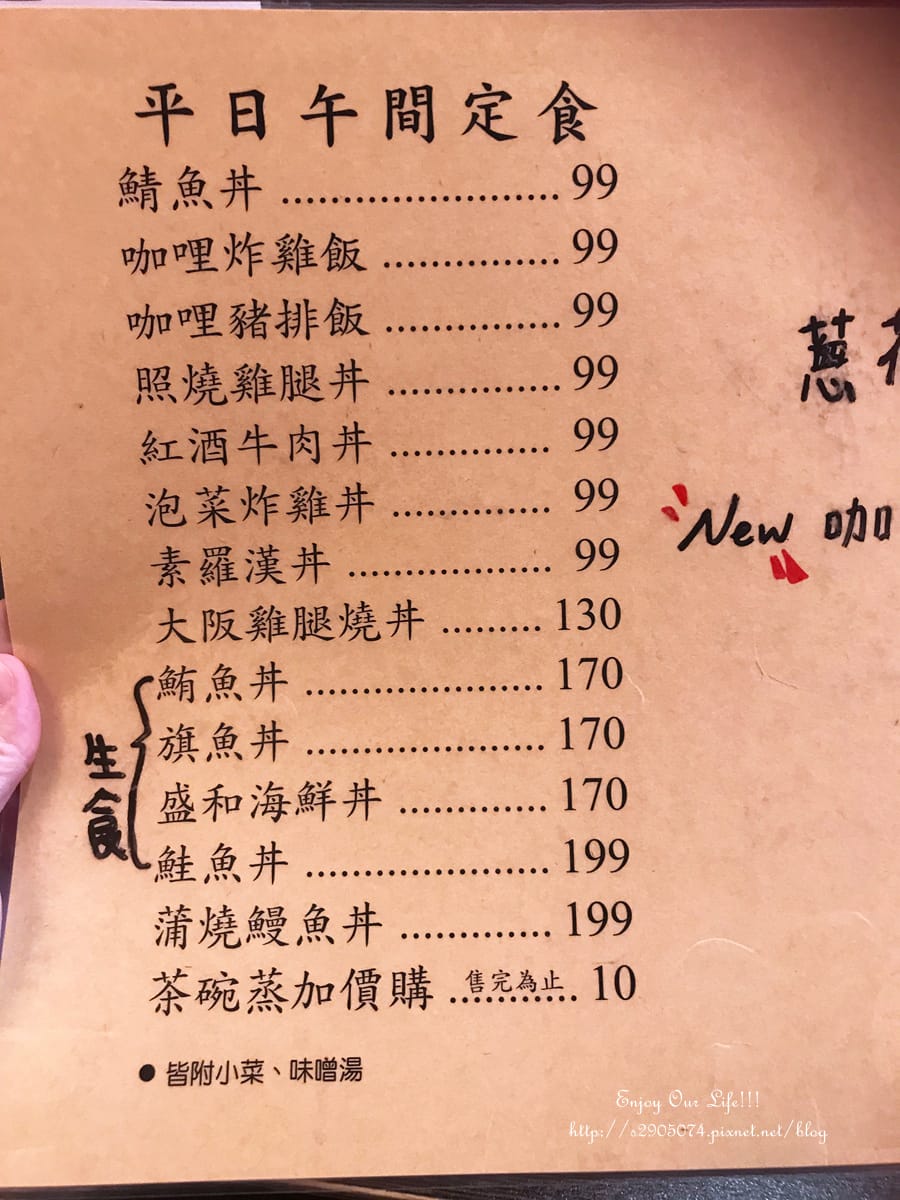 平日午間定食
鯖魚丼 ........................ 99
咖哩炸雞飯 ............... 99
咖哩豬排飯 ............... 99
照燒雞腿丼 ............... 99
紅酒牛肉丼 .............. 99
泡菜炸雞丼 .............. 99
素羅漢丼 .................. 99
大阪雞腿燒丼 ......... 130
鮪魚丼 ..................... 170
旗魚丼 ..................... 170
盛和海鮮丼 ............. 170
鮭魚丼 ..................... 199
蒲燒鰻魚丼 ............. 199
茶碗蒸加價購 售完為止 10
● 皆附小菜、味噌湯
生食
蔥
New 咖
Enjoy Our Life!!!
http://s2905074.pixnet.net/blog